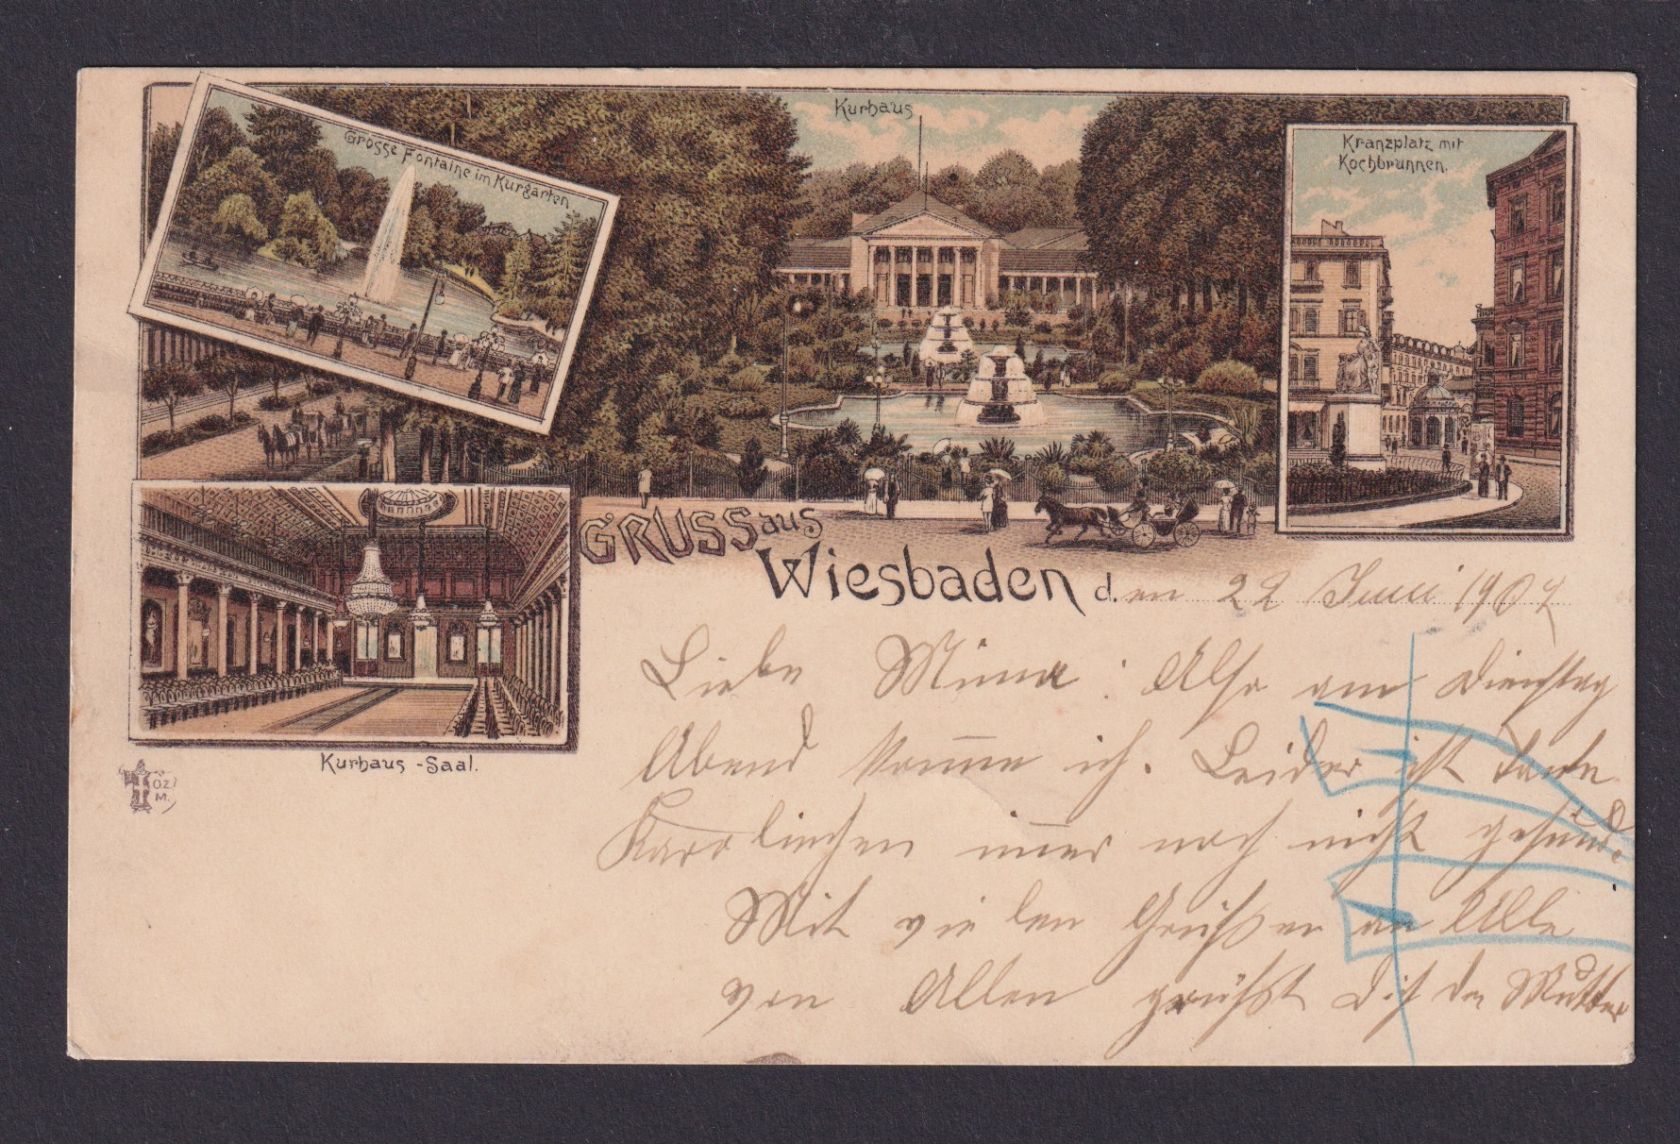 Grosse Fontaine im Kurgarten
Kurhaus
Kranzplatz mit
Kochbrunnen.
GRUSS aus
Wiesbaden d.en 22 Juni 1907
Liebe Minna: Also am Dienstag
Abend komme ich. Leider ist Tante
Karolinchen im̅er noch nicht gesund.
Mit vielen Grüßen an Alle
von Allen grüßt Dich die Mutter
Kurhaus - Saal.
O.Z.
M.